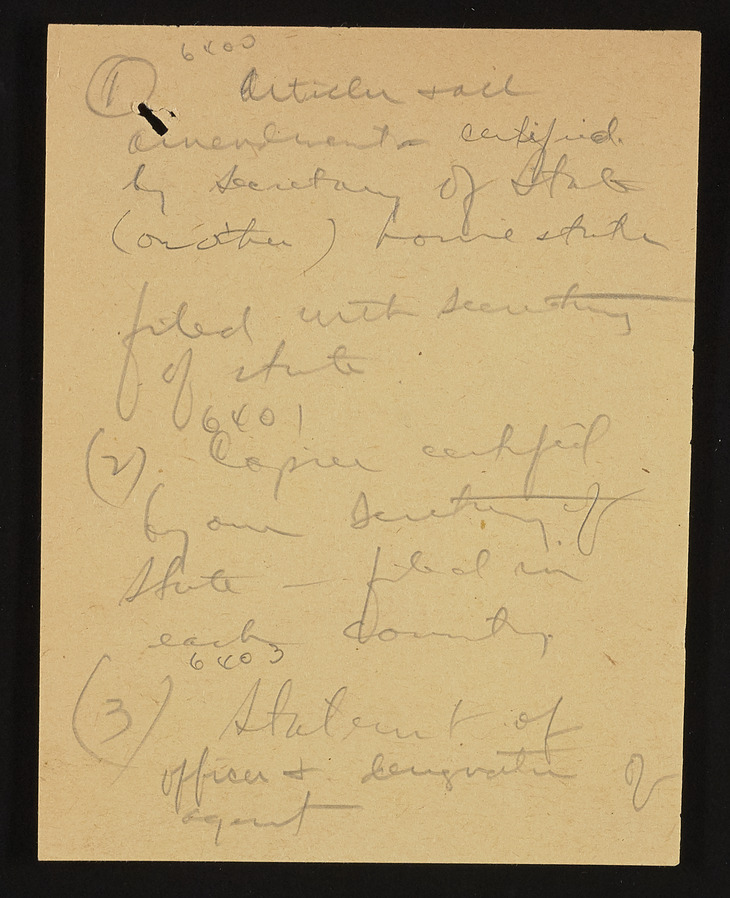 6400
(1) Articles & all
amendments certified
by Secretary of State
(or other) home state
filed with Secretary
of state
6401
(2). Copies certified
by our Secretary of
State — filed in
each County.
6403
(3) Statement of
officers & designation of
agent